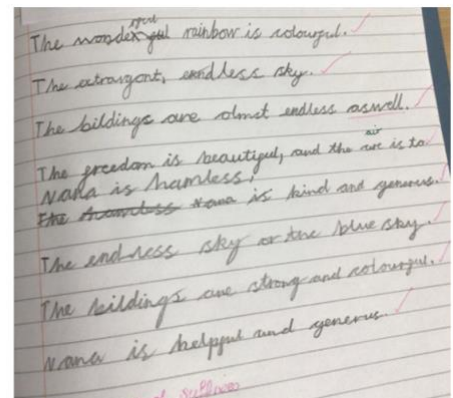 The wonderful rainbow is colourful.
The extragont, endless sky.
The bildings are olmst endless aswell.
air
The greedom is beautiful, and the are is to
Nana is hamless!
The hamless Nana is kind and generus.
The endless sky or the blue sky.
The bildings are strong and colourful.
Nana is helpful and generus.